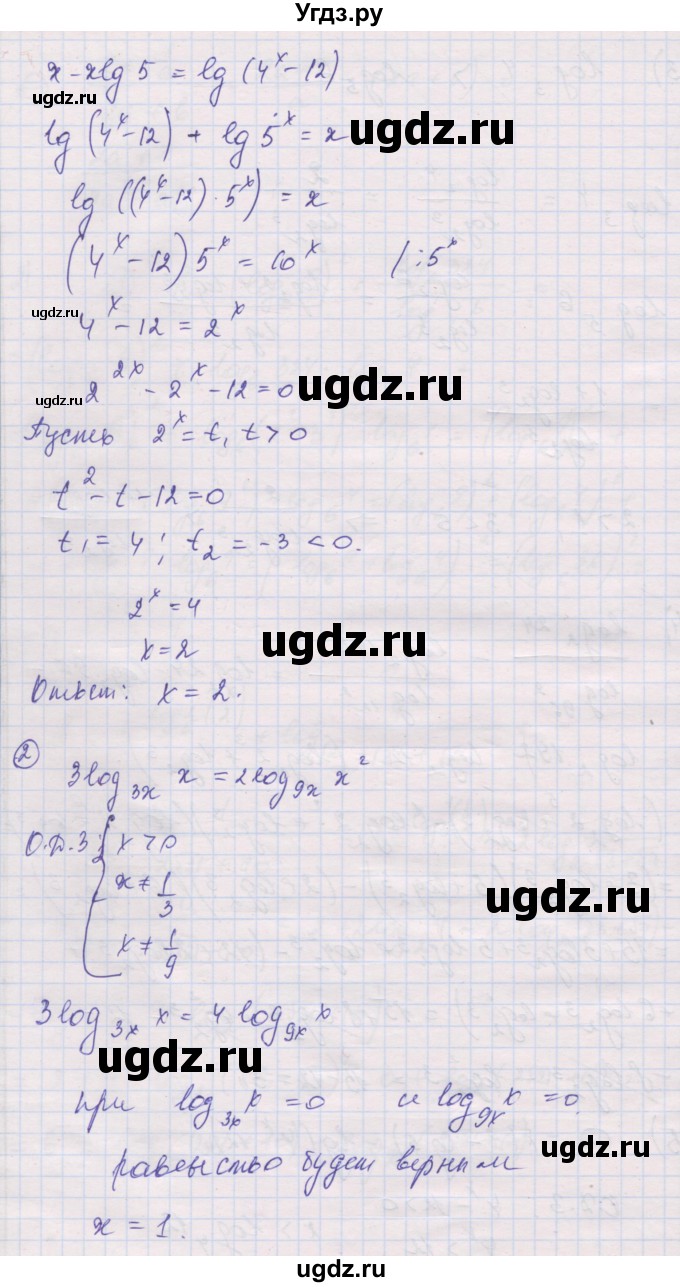 Угдз.ру
x - xlg 5 = lg (4^x - 12)
ugdz.ru
lg (4^x - 12) + lg 5^x = x
ugdz.ru
lg ((4^x - 12) · 5^x) = x
(4^x - 12) 5^x = 10^x /: 5^x
ugdz.ru
4^x - 12 = 2^x
2^2x - 2^x - 12 = 0
ugdz.ru
ugdz.ru
Пусть 2^x = t, t > 0
t^2 - t - 12 = 0
t_1 = 4 ; t_2 = -3 < 0.
2^x = 4
ugdz.ru
x = 2
Ответ: x = 2.
② 3log_3x x = 2log_9x x^2
О.Д.З. { x > 0
x ≠ 1/3
ugdz.ru
x ≠ 1/9
3log_3x x = 4 log_9x x
ugdz.ru
при log_3x x = 0 и log_9x x = 0
ugdz.ru
равенство будет верным
x = 1.
ugdz.ru